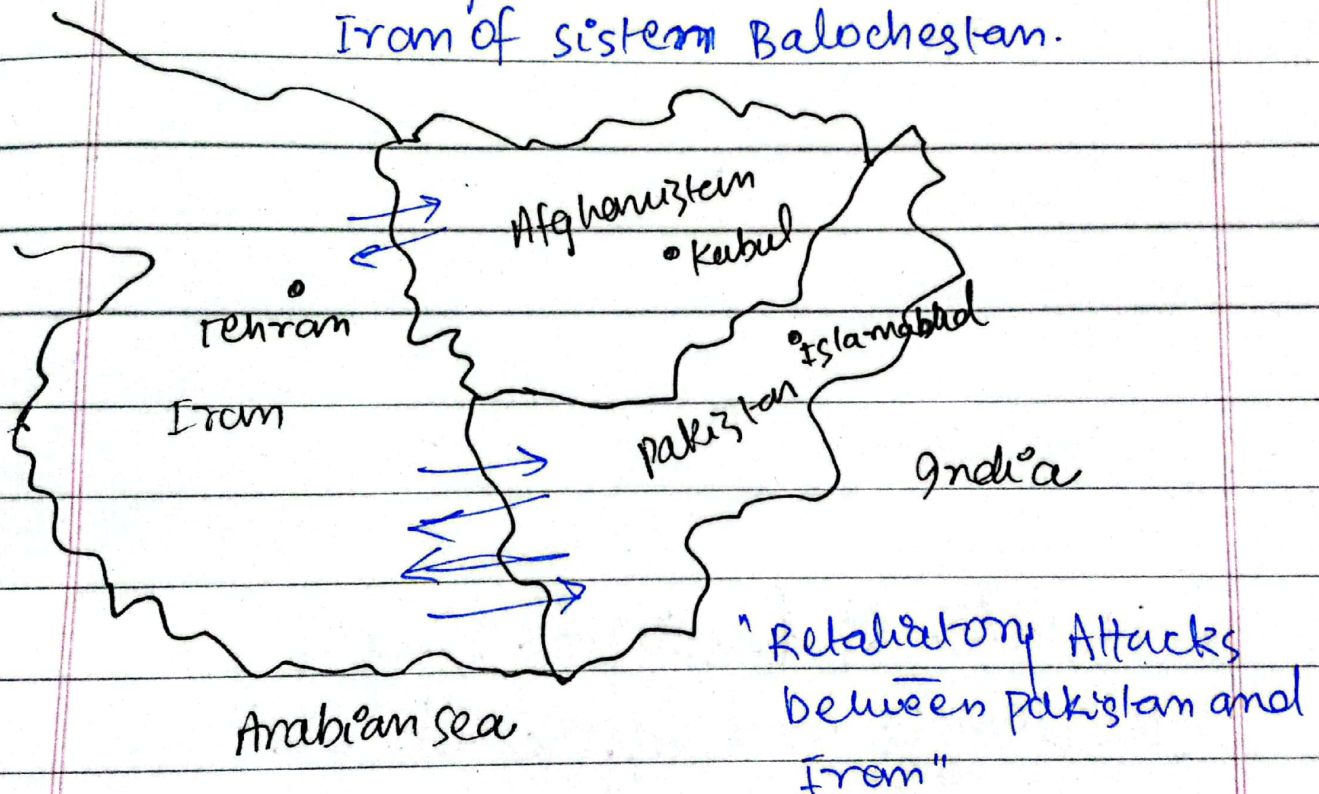 Iran of sistern Balochestan.
Afghanistan
Kabul
Tehran
Islamabad
Iran
pakistan
India
"Retaliatory Attacks
between pakistan and
Iran"
Arabian sea